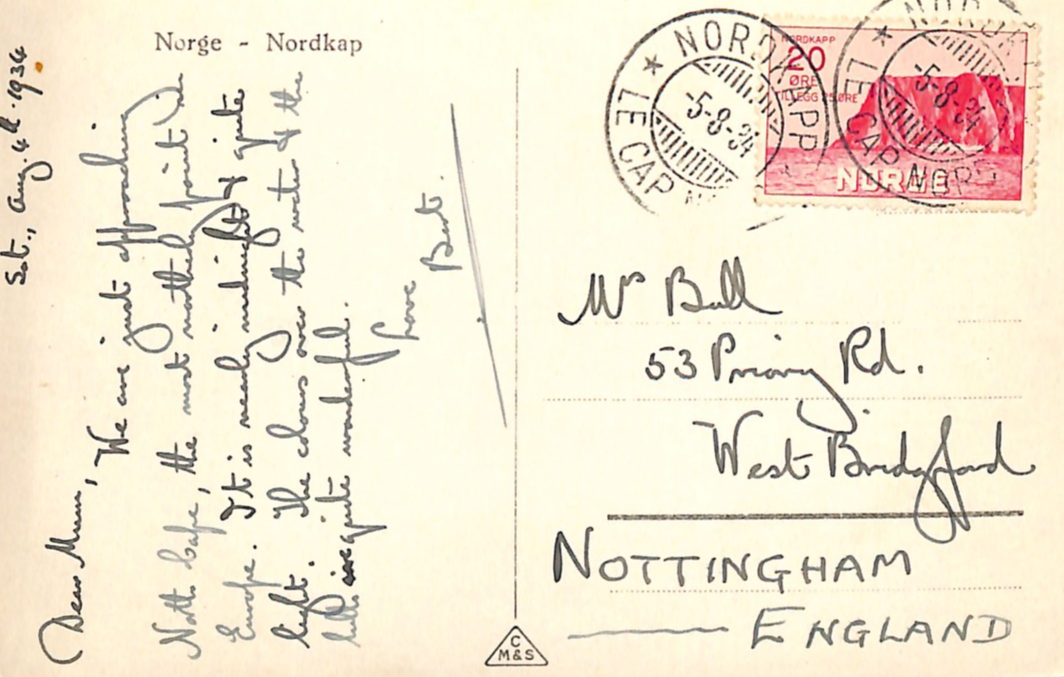 Norge - Nordkap
Sat., Aug. 4th. 1934
Dear Mum,
We are just approaching
North Cape, the most northerly point in
Europe. It is nearly midnight & quite
light. The colours over the water & the
hills is quite wonderful.
Love
Bert.
NORDKAPP
LE CAP NORD
-5-8-34
NORDKAPP
20
ØRE
TILLEGG 25 ØRE
NORGE
NORDKAPP
LE CAP NORD
-5-8-34
Mrs Ball
53 Priory Rd.
West Bridgford
NOTTINGHAM
ENGLAND
C
M&S